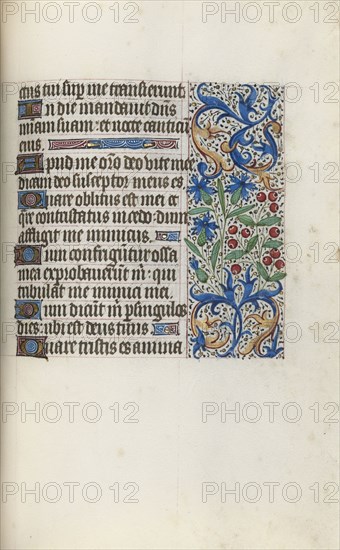 ctus tui sup me transierunt.
In die mandavit dns
miam suam: et nocte canticu
eius.
Apud me oro deo vite mee
dicam deo susceptor meus es.
Quare oblitus est mei et
qre contristatus incedo: dum
affligit me inimicus.
Dum confringutur ossa
mea exprobaverunt m: qui
tribulant me inimici mei.
Dum dicut m p singulos
dies: ubi est deus tuus.
Quare tristis es anima
PHOTO 12